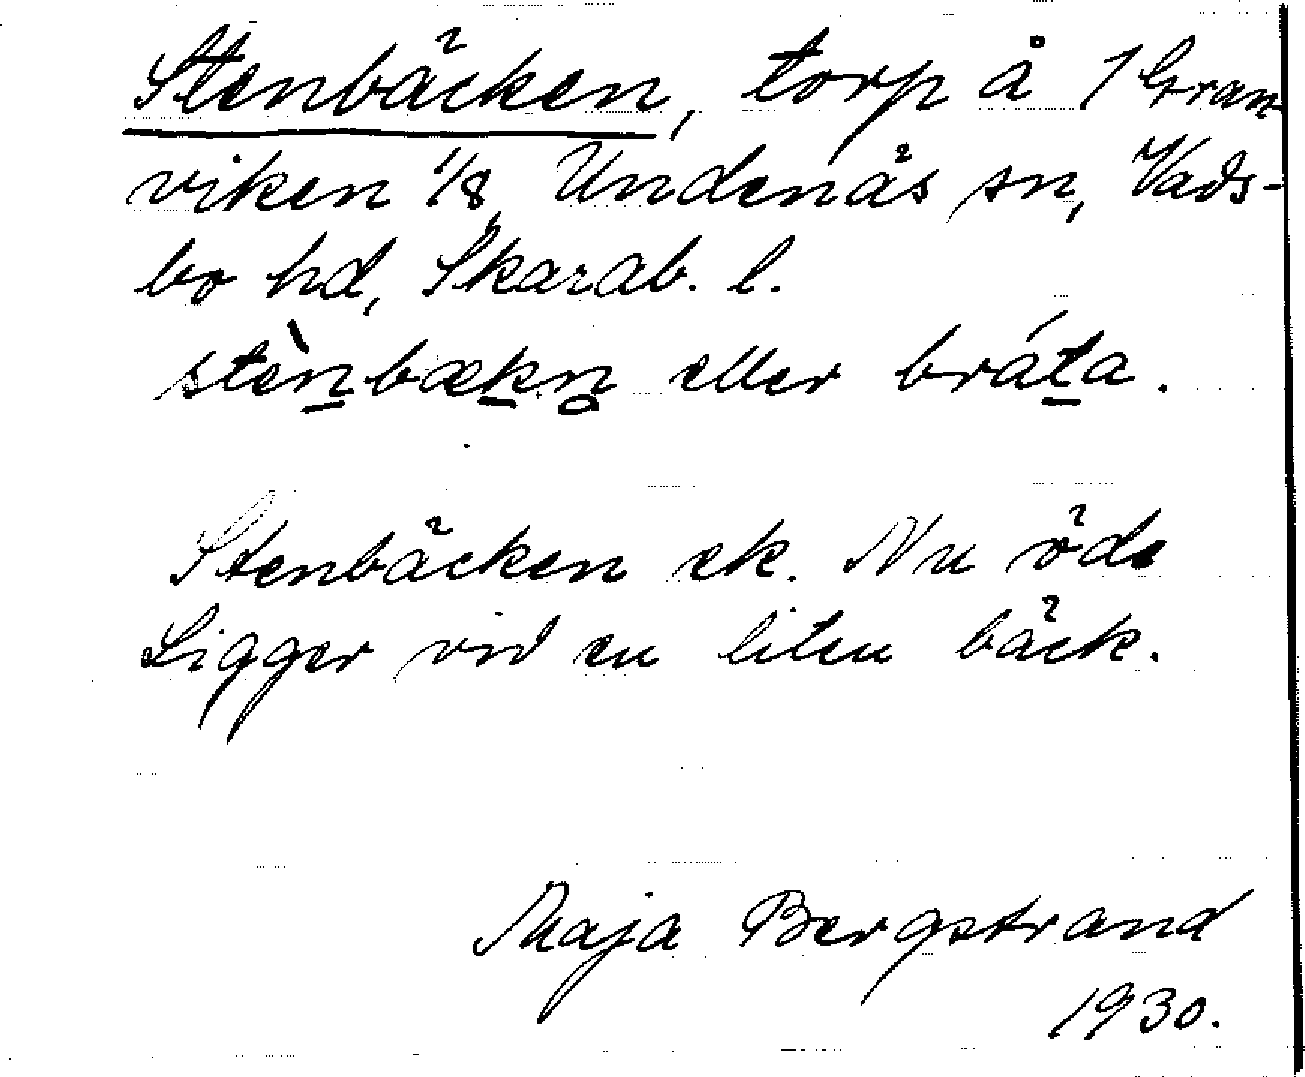 Stenbäcken, torp å 1 Gran
viken 1/8, Undenäs sn, Vads-
bo hd, Skarab. l.
stèn̠bæk̠n̥ eller brát̠a.
Stenbäcken ek. Nu öde
Ligger vid en liten bäck.
Maja Bergstrand
1930.